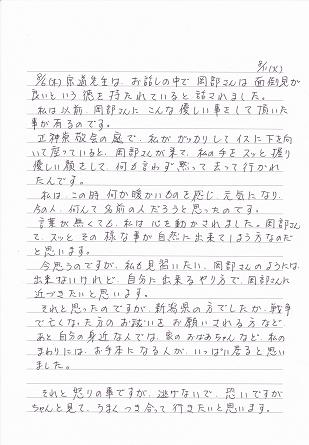 9/11(火)
9/6(木)原道先生は、お話しの中で岡部さんは面倒見が
良いという徳を持たれていると話されました。
私は以前、岡部さんに こんな優しい事をして頂いた
事が有るのです。
正神宗敬会の庭で、私が がっかりして イスに下を向
いて座っていると、岡部さんが来て、私の手をスッと握り
優しい顔をして、何も言わず黙って去って行かれ
たんです。
私は、この時 何か暖かいものを感じ、元気になり、
今の人、何んて名前の人だろうと思ったのです。
言葉が無くても、私は 心を動かされました。岡部さん
て、スッと その様な事が自然に出来てしまう方なのだ
と思います。
今思うのですが、私も見習いたい、岡部さんのようには、
出来ないけれど、自分に出来るやり方で、岡部さんに
近づきたいと思います。
それと思ったのですが、新潟県の方でしたか、戦争
で亡くなった方の お祓いを お願いされる方など、
あと自分の身近な人では、裏の おばあちゃんなど、私の
まわりには、お手本になる人が、いっぱい居ると思い
ました。
それと 怒りの事ですが、逃げないで、恐いですが
ちゃんと見て、うまくつき合って行きたいと思います。